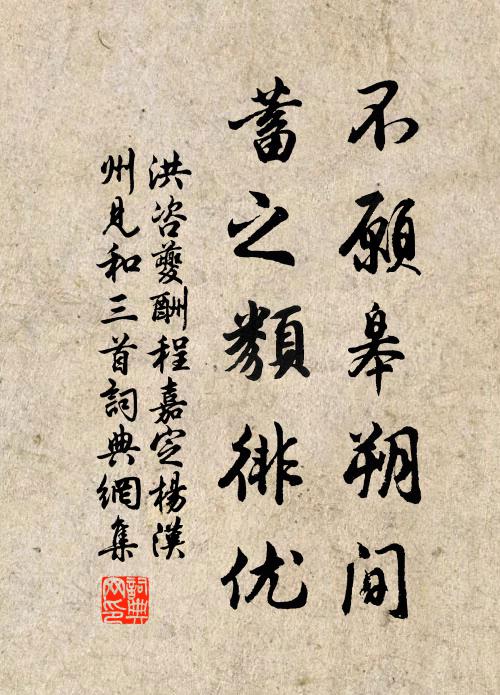 不願皋朔間
蓄之類徘优
洪咨夔酬程嘉定楊漢
州見和三首詞典網集
詞典网印